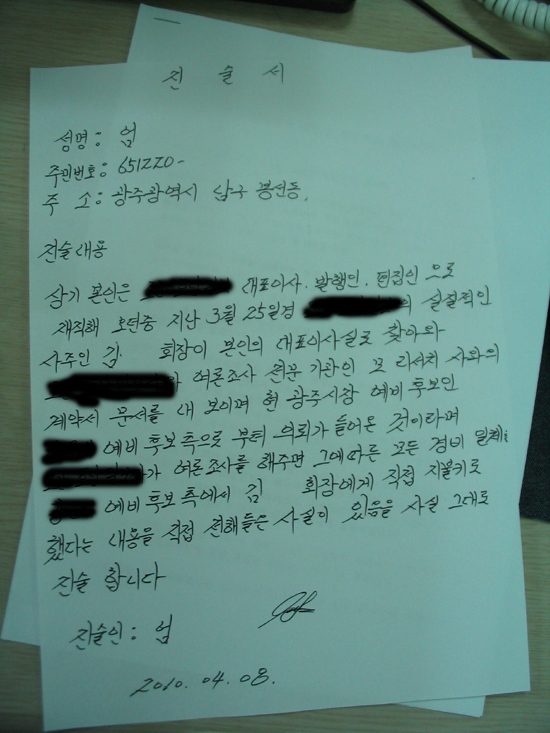 진 술 서
성명: 엄
주민번호: 651220-
주 소: 광주광역시 남구 봉선동.
진술내용
상기 본인은 대표이사. 발행인. 편집인 으로
재직해 오던중 지난 3월 25일경 의 실질적인
사주인 김 회장이 본인의 대표이사실로 찾아와
여론조사 전문 기관인 모 리서치 사와의
계약서 문서를 내 보이며 현 광주시장 예비 후보인
예비 후보 측으로 부터 의뢰가 들어온 것이라며
가 여론조사를 해주면 그에따른 모든 경비 일체를
예비 후보 측에서 김 회장에게 직접 지불키로
했다는 내용을 직접 전해들은 사실이 있음을 사실 그대로
진술 합니다
진술인: 엄
2010. 04. 08.